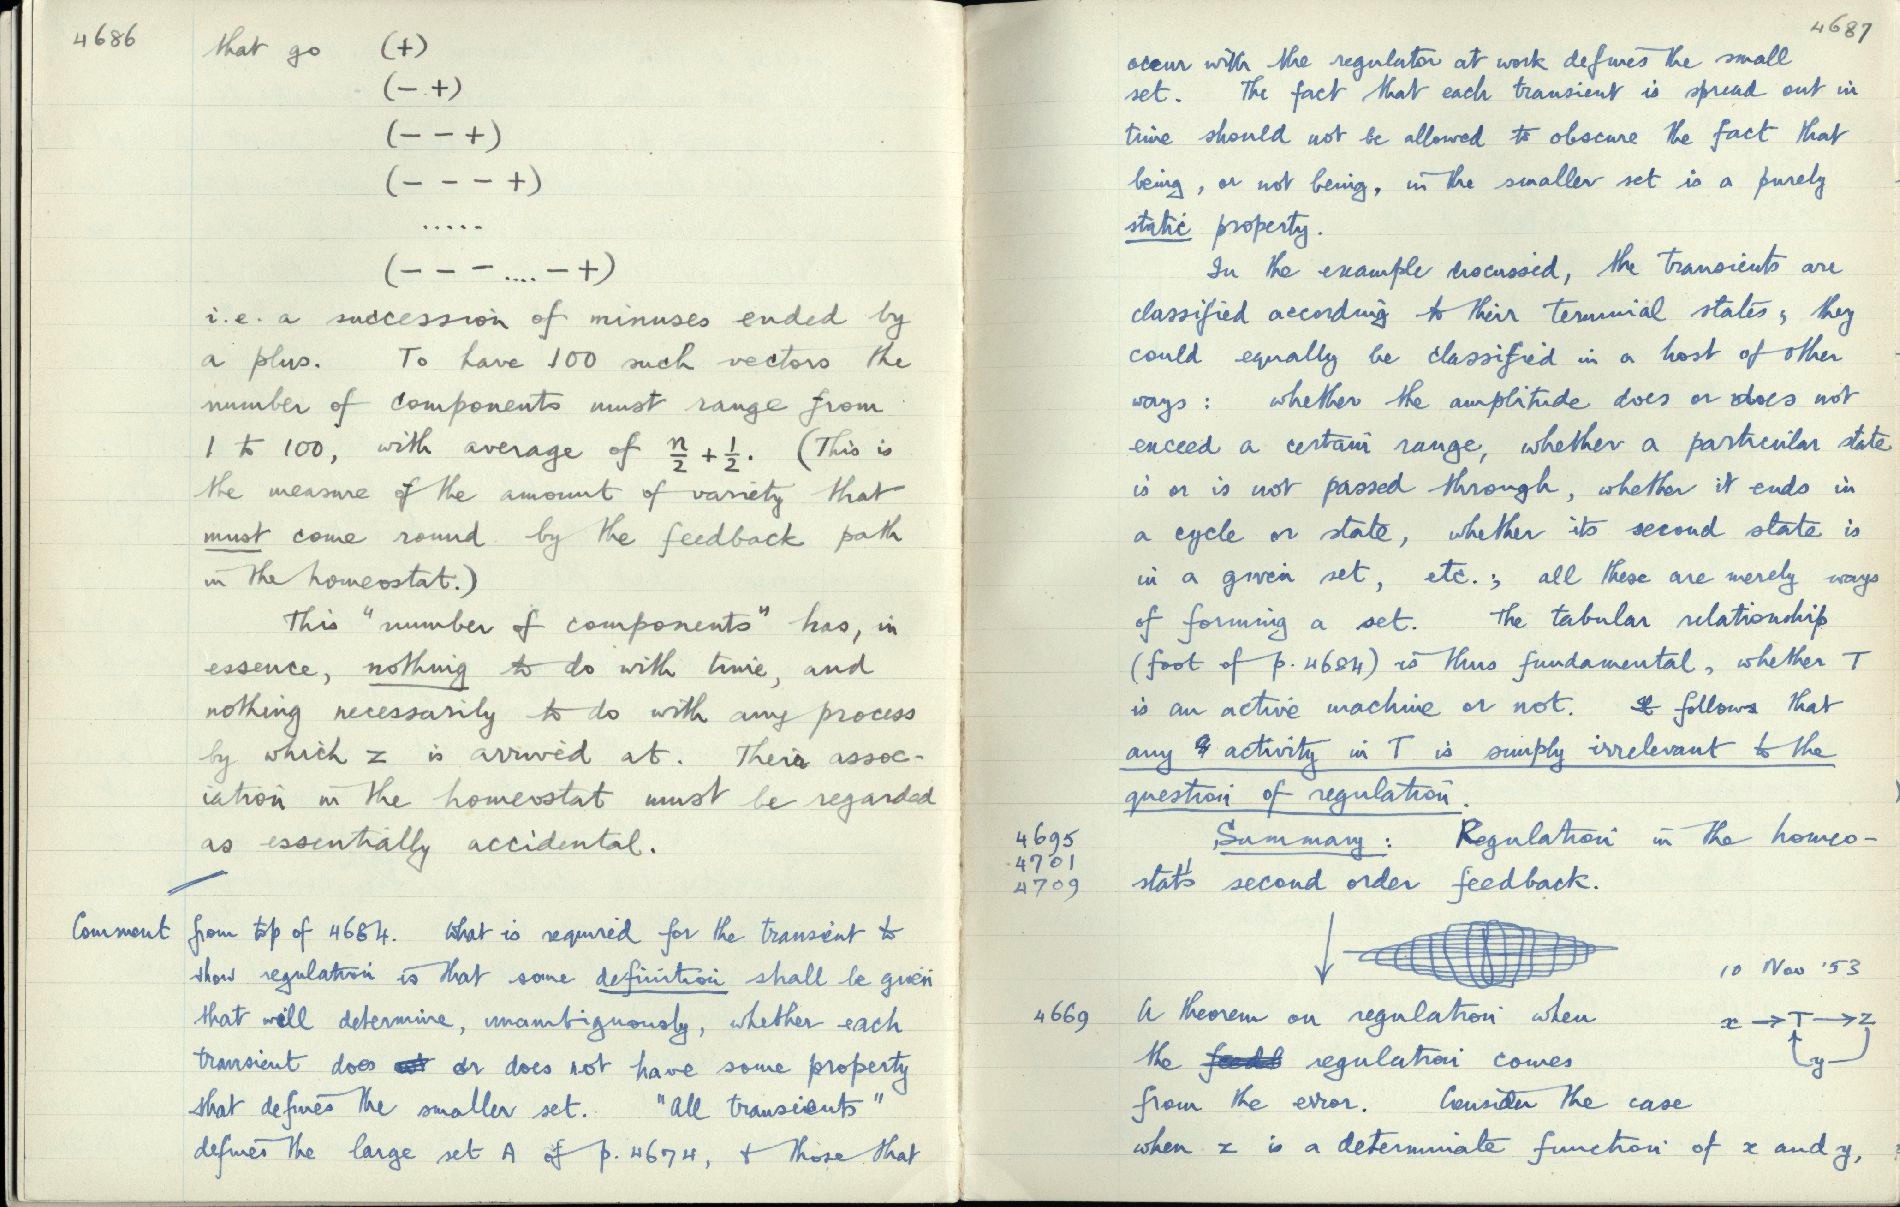 4686
that go (+)
(- +)
(- - +)
(- - - +)
.....
(- - - .... - +)
i.e. a succession of minuses ended by
a plus. To have 100 such vectors the
number of components must range from
1 to 100, with average of n/2 + 1/2. (This is
the measure of the amount of variety that
must come round by the feedback path
in the homeostat.)
This "number of components" has, in
essence, nothing to do with time, and
nothing necessarily to do with any process
by which z is arrived at. Their assoc-
iation in the homeostat must be regarded
as essentially accidental.
Comment from top of 4684. What is required for the transient to
show regulation is that some definition shall be given
that will determine, unambiguously, whether each
transient does or does not have some property
that defines the smaller set. "All transients"
defines the large set A of p. 4674, & those that
4687
occur with the regulator at work defines the small
set. The fact that each transient is spread out in
time should not be allowed to obscure the fact that
being, or not being, in the smaller set is a purely
static property.
In the example discussed, the transients are
classified according to their terminal states; they
could equally be classified in a host of other
ways: whether the amplitude does or does not
exceed a certain range, whether a particular state
is or is not passed through, whether it ends in
a cycle or state, whether its second state is
in a given set, etc.; all these are merely ways
of forming a set. The tabular relationship
(foot of p. 4684) is thus fundamental, whether T
is an active machine or not. It follows that
any activity in T is simply irrelevant to the
question of regulation.
4695
4701
4709
Summary: Regulation in the homeo-
stat's second order feedback.
10 Nov '53
4669 A theorem on regulation when
x → T → z
the regulation comes
y
from the error. Consider the case
when z is a determinate function of x and y,